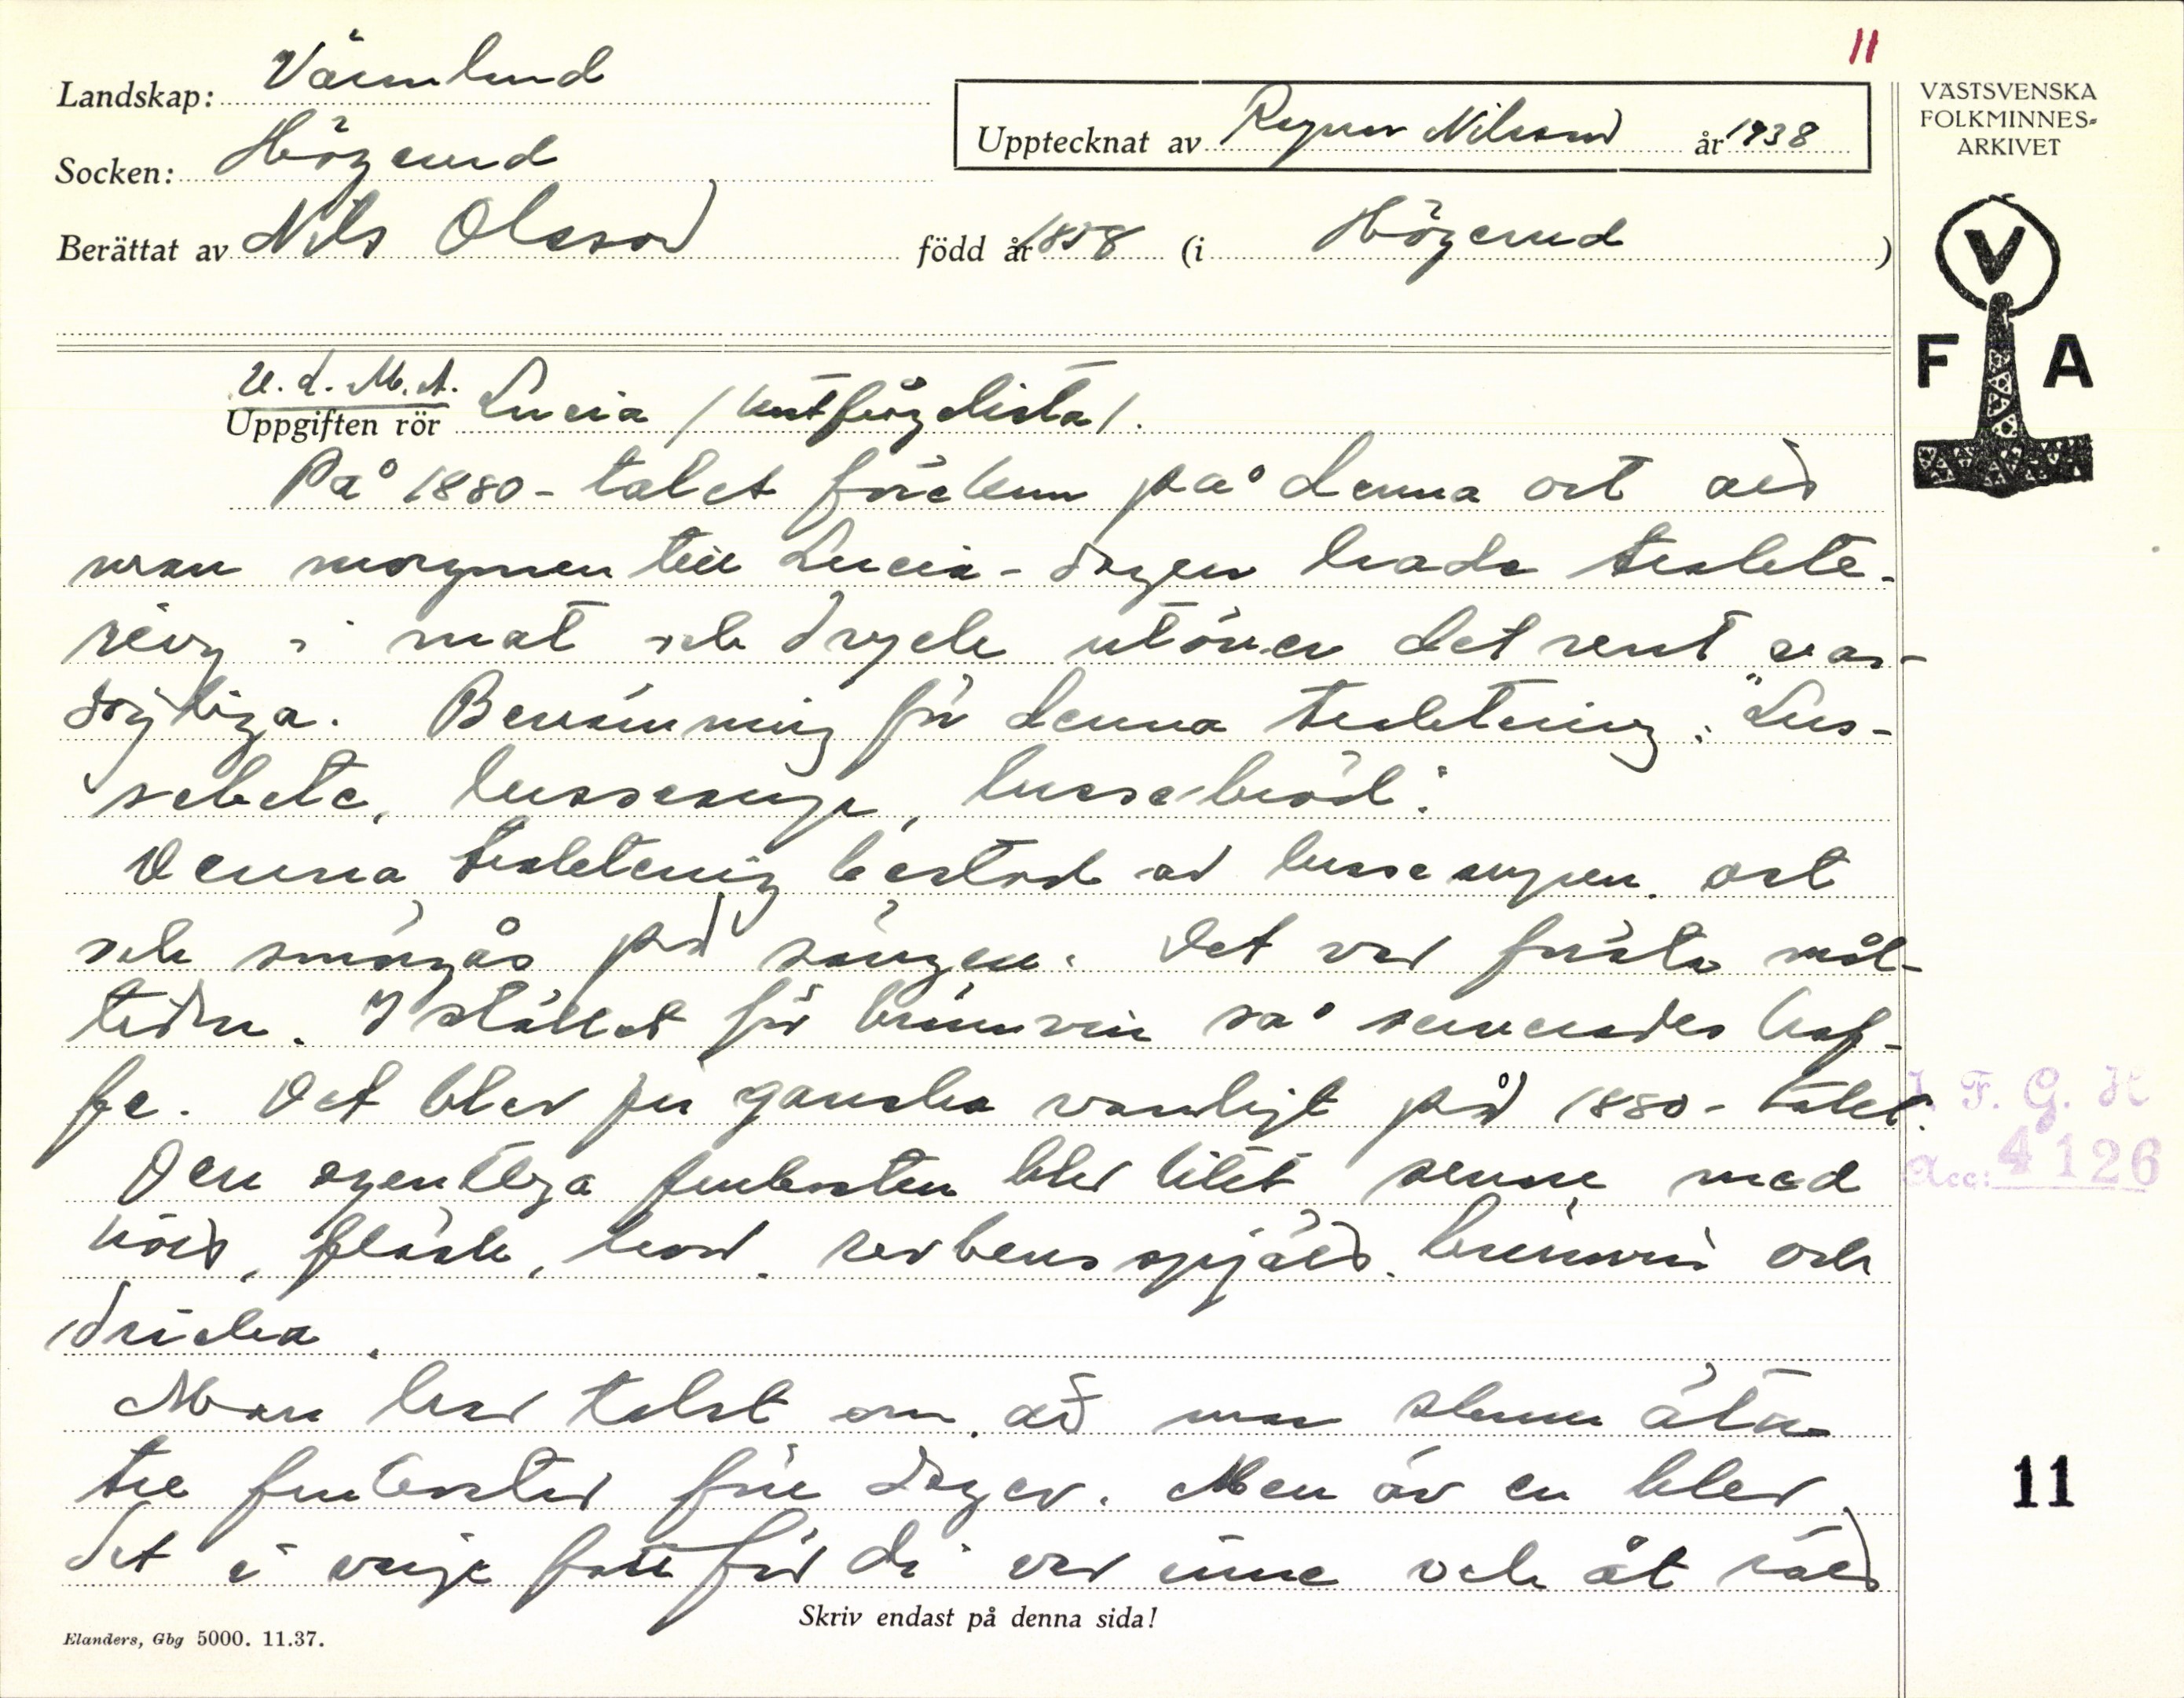 11
Landskap: Värmland
Socken: Högerud
Upptecknat av Ragnar Nilsson år 1938
VÄSTSVENSKA
FOLKMINNES-
ARKIVET
Berättat av Nils Olsson född år 1858 (i Högerud )
V
F A
U. d. M. A.
Uppgiften rör Lucia / kostfrågelista/.
På 1880-talet förekom på denna ort att
man morgonen till Lucia-dagen hade trakte-
ring i mat och dryck utöver det rent var-
dagliga. Benämning för denna traktering: "Lus-
sebete, lussesupa, lussebröd".
Denna traktering bestod av lussesupen, ost
och smörgås på sängen. Det var första mål-
tiden. I stället för brännvin så serverades kaf-
fe. Det blev ju ganska vanligt på 1880-talet.
Den egentliga frukosten blev litet senare med
kött, fläsk, korv, revbensspjäll, brännvin och
dricka.
Man har talat om att man skulle äta
tre frukostar före dager. Men äv en blev
det i varje fall för di var inne och åt
Skriv endast på denna sida!
Elanders, Gbg 5000. 11.37.
I. F. G. H
Acc: 4126
11